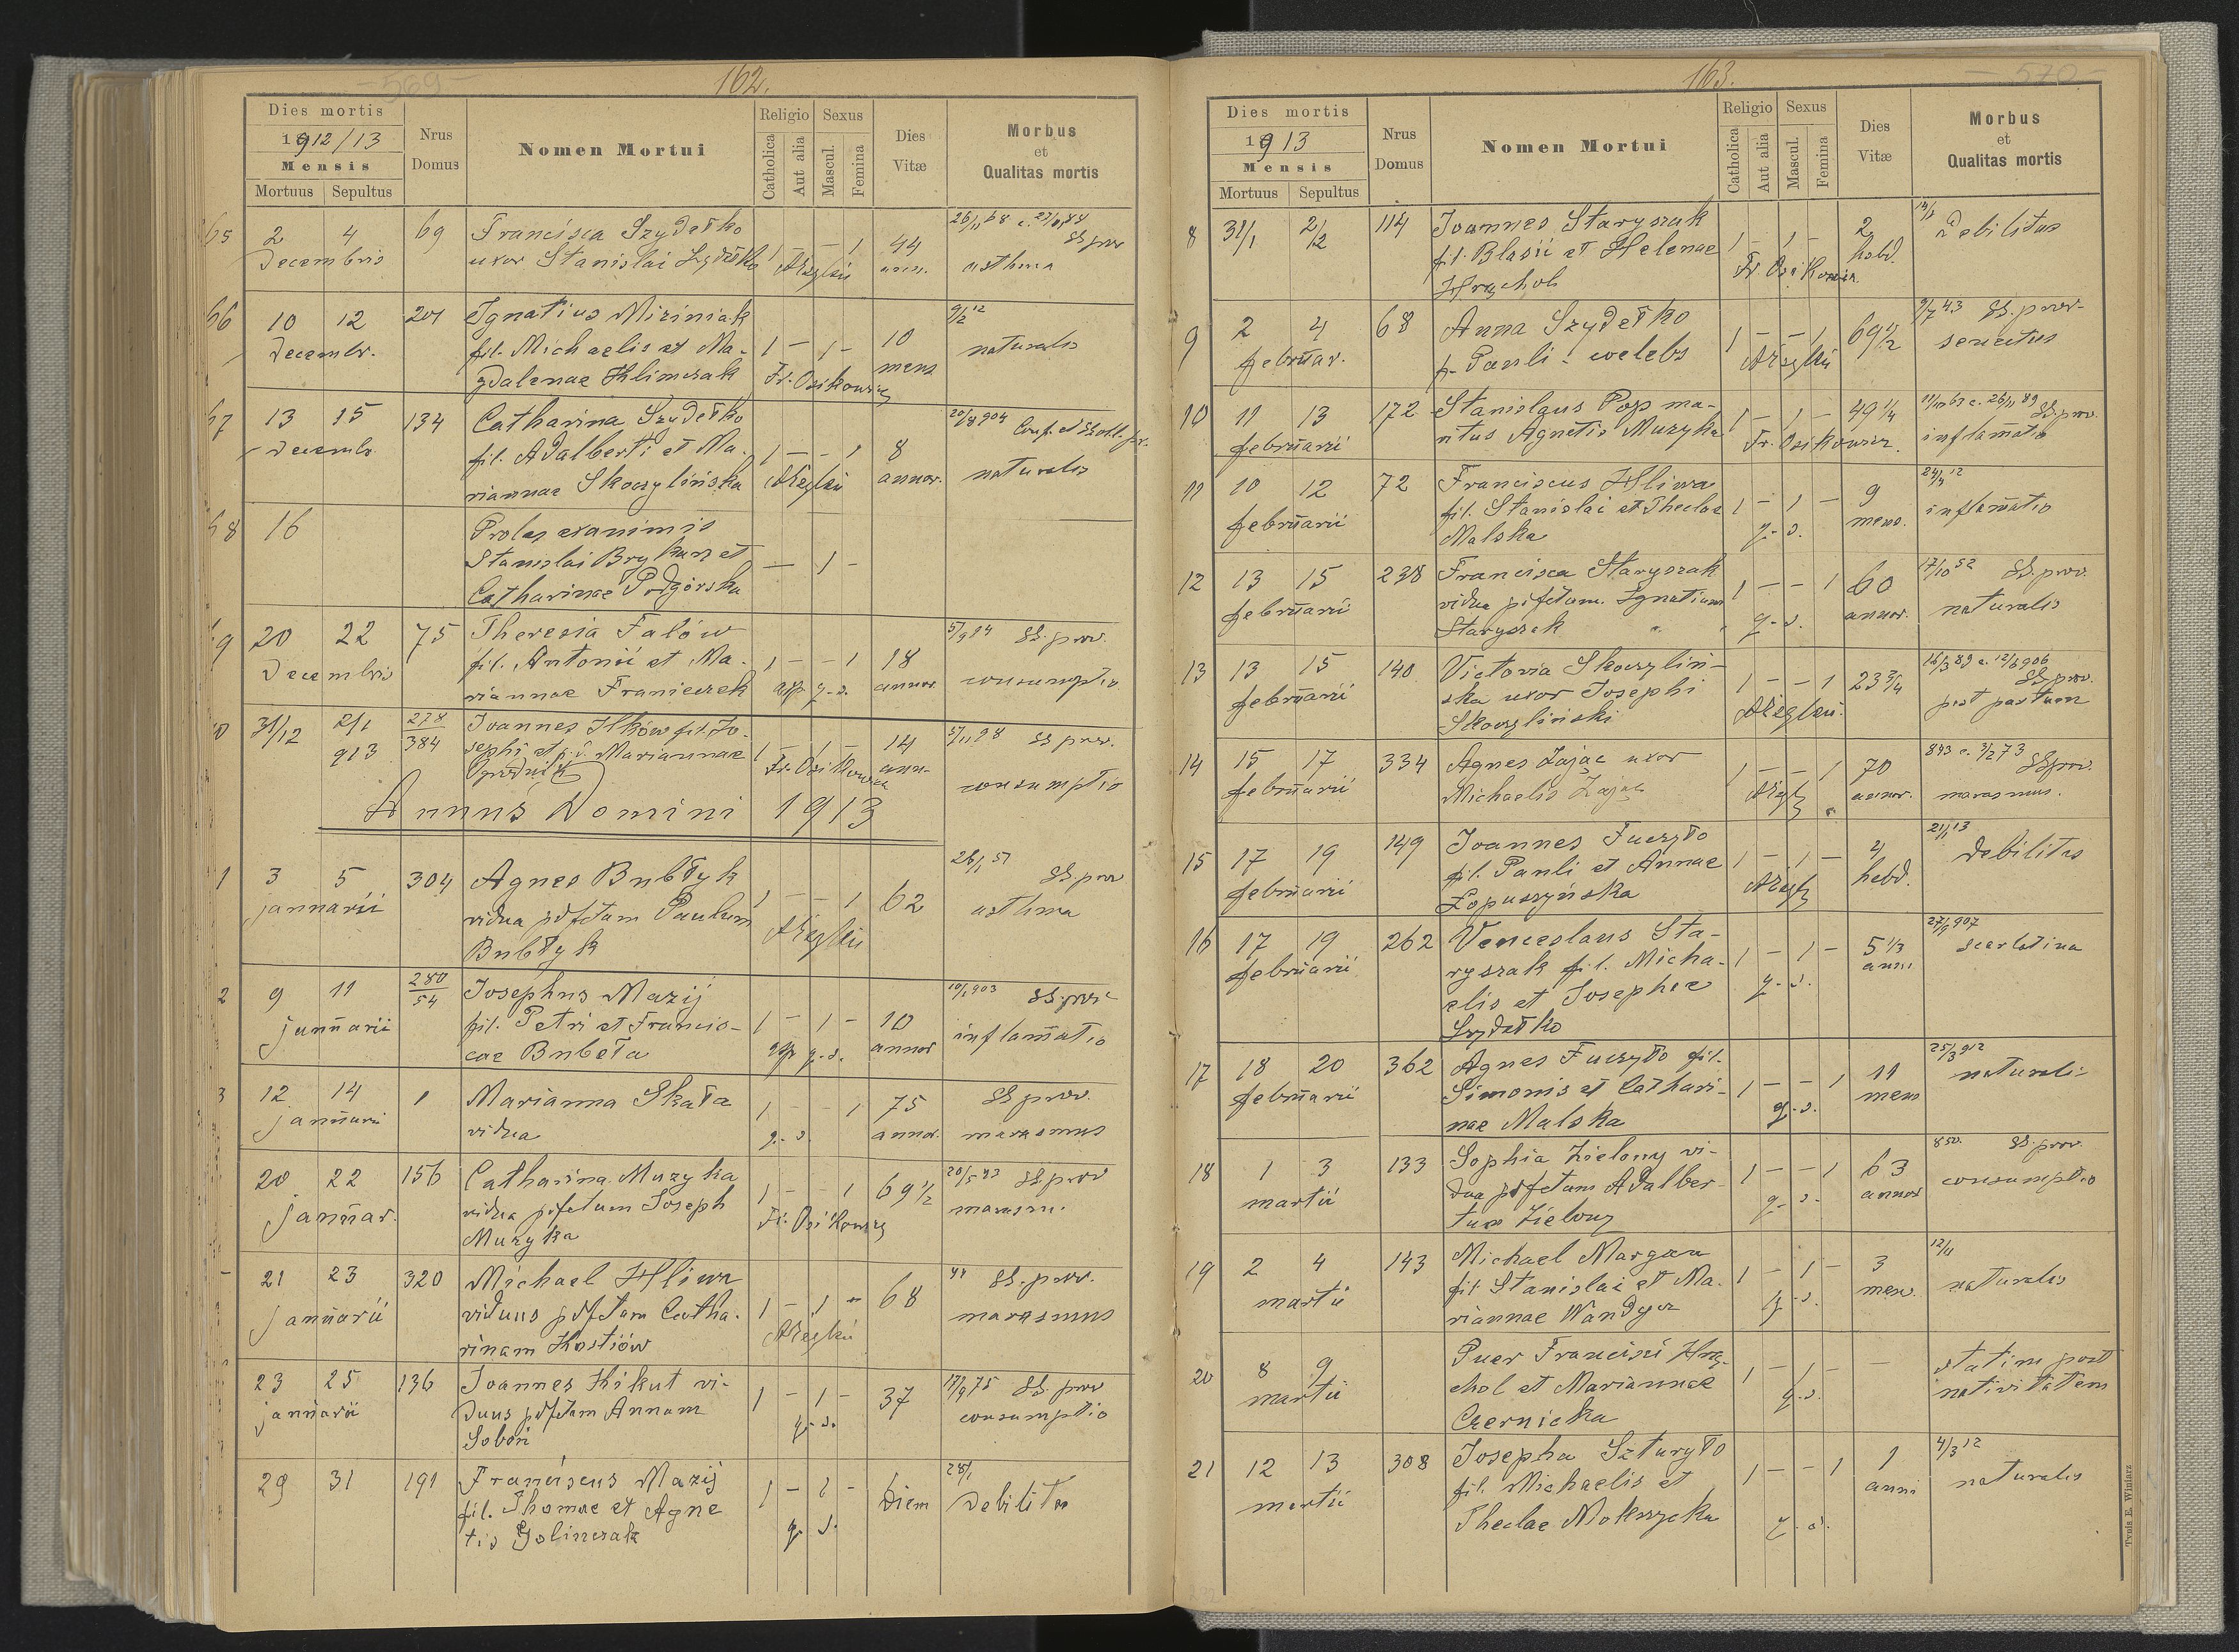 569
162.
Dies mortis
1912/13
Mensis
Mortuus Sepultus
Nrus Domus
Nomen Mortui
Religio
Catholica
Aut alia
Sexus
Mascul.
Femina
Dies Vitæ
Morbus
et
Qualitas mortis
65 2 4 69 Francisca Szydełko 1 – – 1 44
Decembris uxor Stanislai Szydełko asthma
66 10 12 201 Ignatius Miziniak
Decembr. fil. Michaelis et Ma- 1 – 1 – 10 naturalis
gdalenae Klimczak Fr. Osikowicz mens
67 13 15 134 Catharina Szydełko 20/8 904
Decembr. fil. Adalberti et Ma- 1 – – 1 8 naturalis
riannae Skoczylińska annor.
68 16 Proles exanimis
Stanislai Brykarz et – 1 –
Catharinae Podgórska
69 20 22 75 Theresia Falów 5/9 94 SS. prov.
Decembris fil. Antonii et Ma- 1 – – 1 18
riannae Franiczek q. s. annor. consumptio
31/12 2/1 913 278/384 Joannes Ilków fil. Jo- 5/11 98 SS prov.
sephi et Mariannae 1 – 1 – 14
Fr. Osikowicz consumptio
Annus Domini 1913
1 3 5 304 Agnes Bubłyk 1 – – 1 62 SS. prov
januarii vidua pdfctam Paulum asthma
Bubłyk
2 9 11 280/54 Josephus Mazij 10/1 903 SS. prov
januarii fil. Petri et Francis- 1 – 1 – 10 inflamatio
cae Bubeła q. s. annor
3 12 14 1 Marianna Skała 1 – – 1 75 SS prov.
januarii vidua q. s. annor. marasmus
20 22 156 Catharina Muzyka 1 – – 1 69 1/2 20/5 43 SS prov
januar. vidua pdfctum Joseph Fr. Osikowicz
Muzyka
21 23 320 Michael Hliwa 44 SS. prov.
januarii viduus pdfctam Catha- 1 – 1 – 68 marasmus
rinam Kostiów
23 25 136 Joannes Kikut vi- 1 – 1 – 37 17/9 75 SS. prov
januarii duus pdfctam Annam q. s. consumptio
Soboń
29 31 191 Franciscus Mazij 1 – 1 – Diem 28/1 Debilitas
fil. Thomae et Agne
tis Golinczak q. s.
163.
570
Dies mortis
1913
Mensis
Mortuus Sepultus
Nrus Domus
Nomen Mortui
Religio
Catholica
Aut alia
Sexus
Mascul.
Femina
Dies Vitæ
Morbus
et
Qualitas mortis
8 31/1 2/2 114 Joannes Staryszak 1 – 1 – 2 Debilitas
fil. Blasii et Helenae hebd.
Hrychol Fr. Osikowicz
9 2 4 68 Anna Szydełko 1 – – 1 69 1/2 SS. prov.
februar. f. Pauli: coelebs senectus
10 11 13 172 Stanislaus Pop ma- 1 – 1 – 49 1/4 SS. prov.
februarii ritus Agnetis Muzyka Fr. Osikowicz. inflamatio
11 10 12 72 Franciscus Hliwa 1 – 1 – 9 24/4 12
februarii fil. Stanislai et Theclae mens. inflamatio
Malska q. s.
12 13 15 238 Francisca Staryszak 1 – – 1 60 17/10 52 SS. prov.
februarii vidua pdfctum. Ignatium annor. naturalis
Staryszak q. s.
13 13 15 140 Victoria Skoczyliń- 1 – – 1 23 3/4 SS prov.
februarii ska uxor Josephi post partum
Skoczyliński
14 15 17 334 Agnes Zając uxor 1 – – 1 70 843 c. 3/2 73 SS prov.
februarii Michaelis Zając annor. marasmus.
15 17 19 149 Joannes Fuczyło 1 – 1 – 4 21/1 13 Debilitas
februarii fil. Pauli et Annae hebd.
Łopuszyńska
16 17 19 262 Venceslaus Sta- 1 – 1 – 5 1/3 27/9 907 scarlatina
februarii ryszak fil. Micha- anni
elis et Josephae q. s.
Szydełko
17 18 20 362 Agnes Fuczyło fil. 1 – – 1 11 25/3 912 naturalis
februarii Simonis et Cathari- mens
nae Malska q. s.
18 1 3 133 Sophia Zielony vi- 1 – – 1 63 850. SS. prov.
martii dua pdfctum Adalber- annor consumptio
tum Zielony q. s.
19 2 4 143 Michael Margan 1 – 1 – 3 12/11
martii fil. Stanislai et Ma- mens. naturalis
riannae Wandycz q. s.
20 8 9 Puer Francisci Hry- 1 – 1 – – statim post
martii chol et Mariannae q. s. nativitatem
Czernicka
21 12 13 308 Josepha Szturyło 1 – – 1 1 4/3 12
martii fil. Michaelis et anni naturalis
Theclae Mokrzycka q. s.
Typis E. Winiarz